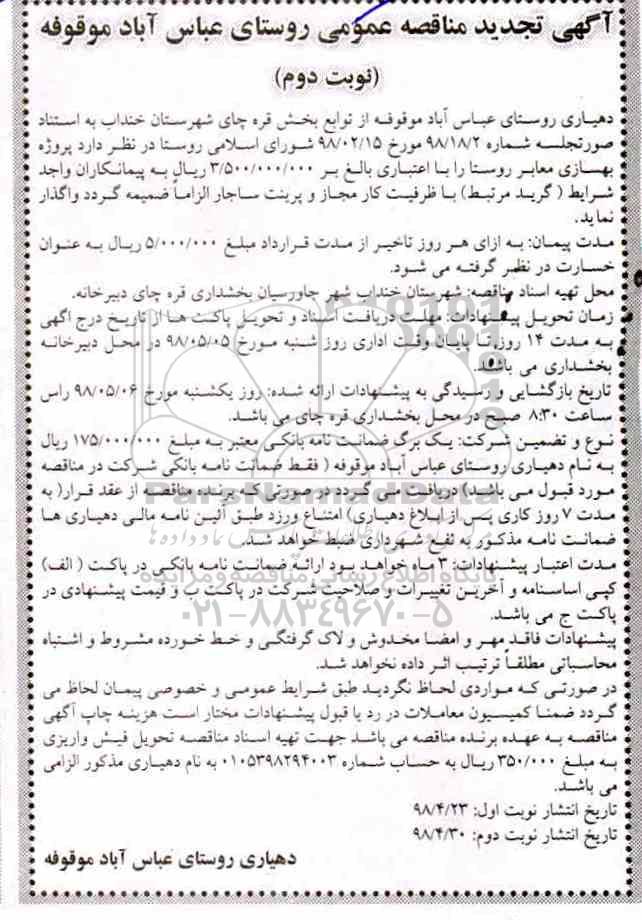 آگهی تجدید مناقصه عمومی روستای عباس آباد موقوفه
(نوبت دوم)
دهیاری روستای عباس آباد موقوفه از توابع بخش قره چای شهرستان خنداب به استناد
صورتجلسه شماره ۹۸/۱۸/۲ مورخ ۹۸/۰۲/۱۵ شورای اسلامی روستا در نظر دارد پروژه
بهسازی معابر روستا را با اعتباری بالغ بر ۳/۵۰۰/۰۰۰/۰۰۰ ریال به پیمانکاران واجد
شرایط ( گرید مرتبط) با ظرفیت کار مجاز و پرینت ساجار الزاماً ضمیمه گردد واگذار
نماید.
مدت پیمان: به ازای هر روز تاخیر از مدت قرارداد مبلغ ۵/۰۰۰/۰۰۰ ریال به عنوان
خسارت در نظر گرفته می شود.
محل تهیه اسناد مناقصه: شهرستان خنداب شهر جاورسیان بخشداری قره چای دبیرخانه.
زمان تحویل پیشنهادات: مهلت دریافت اسناد و تحویل پاکت ها از تاریخ درج آگهی
به مدت ۱۴ روز تا پایان وقت اداری روز شنبه مورخ ۹۸/۰۵/۰۵ در محل دبیرخانه
بخشداری می باشد.
تاریخ بازگشایی و رسیدگی به پیشنهادات ارائه شده: روز یکشنبه مورخ ۹۸/۰۵/۰۶ راس
ساعت ۸:۳۰ صبح در محل بخشداری قره چای می باشد.
نوع و تضمین شرکت: یک برگ ضمانت نامه بانکی معتبر به مبلغ ۱۷۵/۰۰۰/۰۰۰ ریال
به نام دهیاری روستای عباس آباد موقوفه ( فقط ضمانت نامه بانکی شرکت در مناقصه
مورد قبول می باشد) دریافت می گردد در صورتی که برنده مناقصه از عقد قرار( به
مدت ۷ روز کاری پس از ابلاغ دهیاری) امتناع ورزد طبق آئین نامه مالی دهیاری ها
ضمانت نامه مذکور به نفع شهرداری ضبط خواهد شد.
مدت اعتبار پیشنهادات: ۳ ماه خواهد بود ارائه ضمانت نامه بانکی در پاکت ( الف)
کپی اساسنامه و آخرین تغییرات و صلاحیت شرکت در پاکت ب و قیمت پیشنهادی در
پاکت ج می باشد.
پیشنهادات فاقد مهر و امضا مخدوش و لاک گرفتگی و خط خورده مشروط و اشتباه
محاسباتی مطلقاً ترتیب اثر داده نخواهد شد.
در صورتی که مواردی لحاظ نگردید طبق شرایط عمومی و خصوصی پیمان لحاظ می
گردد ضمنا کمیسیون معاملات در رد یا قبول پیشنهادات مختار است هزینه چاپ آگهی
مناقصه به عهده برنده مناقصه می باشد جهت تهیه اسناد مناقصه تحویل فیش واریزی
به مبلغ ۳۵۰/۰۰۰ ریال به حساب شماره ۰۱۰۵۳۹۸۲۹۴۰۰۳ به نام دهیاری مذکور الزامی
می باشد.
تاریخ انتشار نوبت اول: ۹۸/۴/۲۳
تاریخ انتشار نوبت دوم: ۹۸/۴/۳۰
دهیاری روستای عباس آباد موقوفه
ParsNamadData
پایگاه اطلاع رسانی مناقصه و مزایده
۰۲۱-۸۸۳۴۹۶۷۰-۵